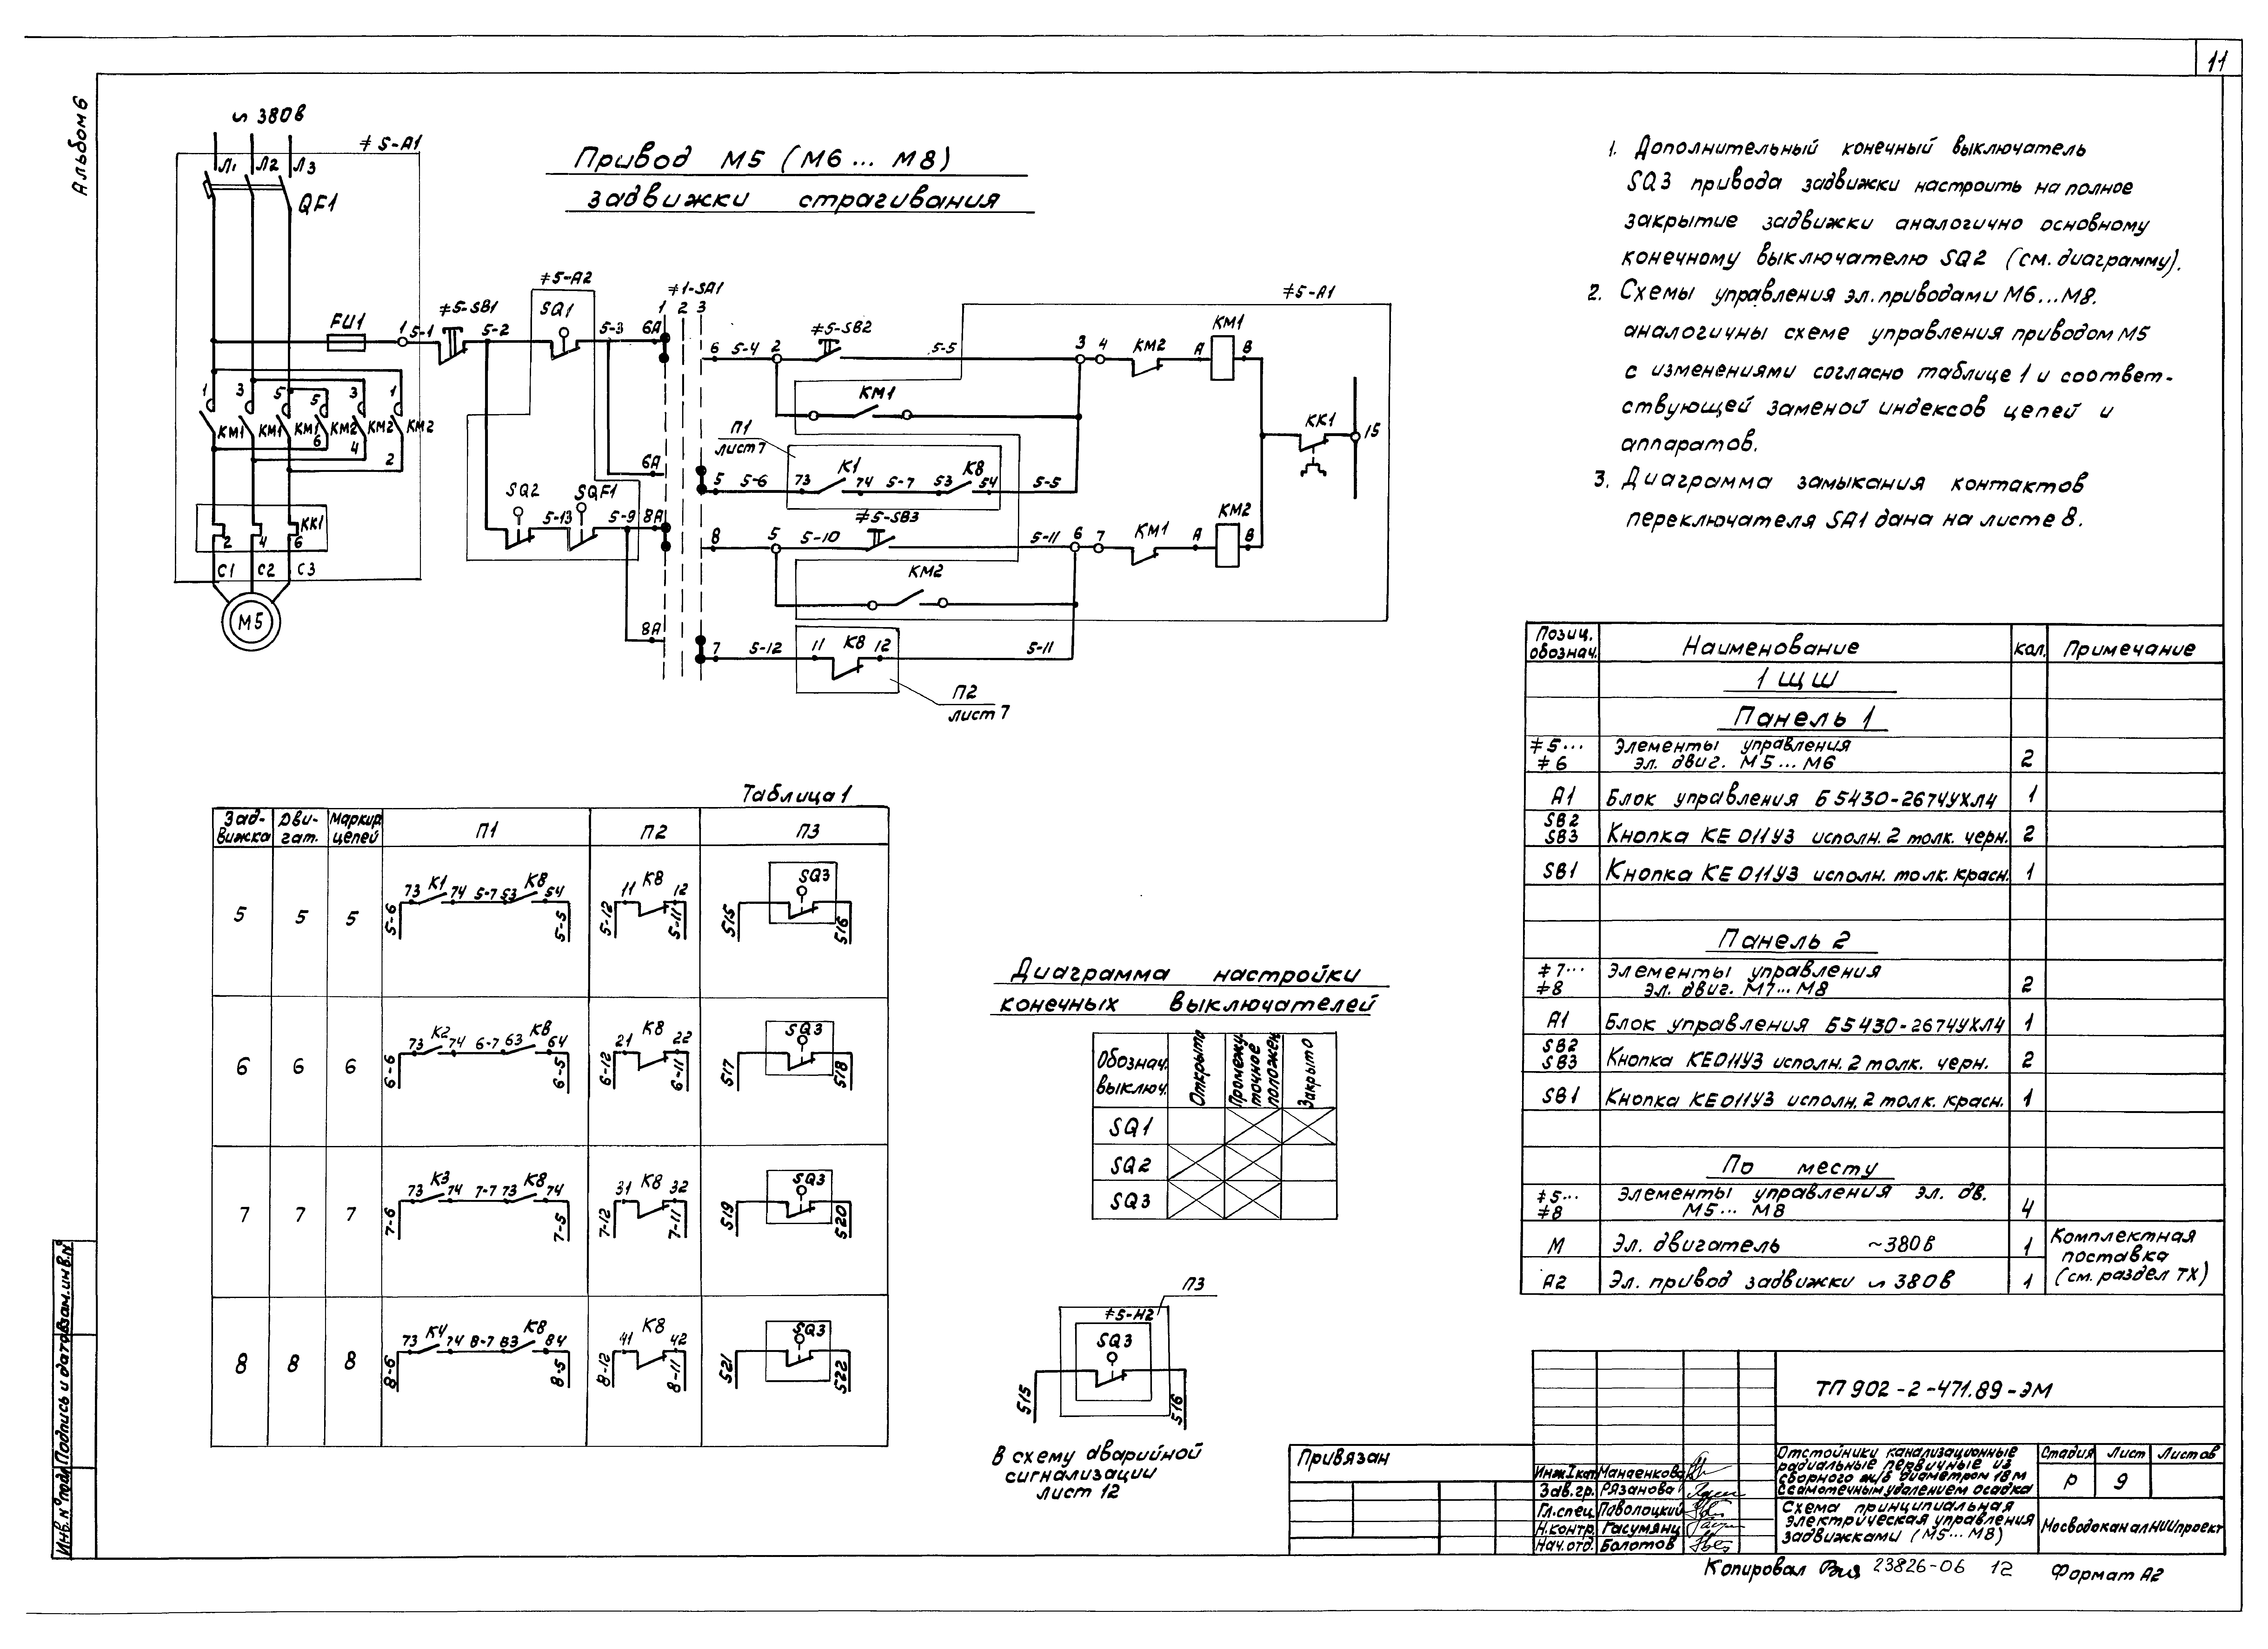 11
Альбом 6
∽ 380в
≠5-А1
Л1 Л2 Л3
QF1
Привод М5 (М6... М8)
задвижки страгивания
FU1
1 5-1
≠5-SB1
5-2
≠5-А2
SQ1
5-3
6А
≠1-SА1
1 2 3
6 5-4 2
≠5-SB2
5-5
3 4
КМ2
А
КМ1
В
≠5-А1
1 3 5 5 3 1
КМ1 КМ1 КМ1 КМ2 КМ2
6 4 2
КМ1
П1
лист 7
6А
5 5-6 73 К1 74 5-7 53 К8 54 5-5
КК1
15
SQ2
5-13
SQF1
5-9
8А
8
5
5-10
≠5-SB3
5-11
6 7
КМ1
А
КМ2
В
КК1
2 4 6
С1 С2 С3
М5
КМ2
8А
7 5-12 11 К8 12 5-11
П2
лист 7
1. Дополнительный конечный выключатель
SQ3 привода задвижки настроить на полное
закрытие задвижки аналогично основному
конечному выключателю SQ2 (см. диаграмму).
2. Схемы управления эл. приводами М6...М8.
аналогичны схеме управления приводом М5
с изменениями согласно таблице 1 и соответ-
ствующей заменой индексов цепей и
аппаратов.
3. Диаграмма замыкания контактов
переключателя SA1 дана на листе 8.
Таблица 1
Зад-
вижка
Дви-
гат.
Маркир.
цепей
П1 П2 П3
5 5 5
5-6 73 К1 74 5-7 53 К8 54 5-5
5-12 11 К8 12 5-11
515 SQ3 516
6 6 6
6-6 73 К2 74 6-7 63 К8 64 6-5
6-12 21 К8 22 6-11
517 SQ3 518
7 7 7
7-6 73 К3 74 7-7 73 К8 74 7-5
7-12 31 К8 32 7-11
519 SQ3 520
8 8 8
8-6 73 К4 74 8-7 83 К8 84 8-5
8-12 41 К8 42 8-11
521 SQ3 522
Диаграмма настройки
конечных выключателей
Обознач.
выключ.
Открыто
Промежу-
точное
положен.
Закрыто
SQ1
SQ2
SQ3
П3
≠5-А2
SQ3
515
516
В схему аварийной
сигнализации
лист 12
Позиц.
обознач.
Наименование
кол.
Примечание
1 ЩШ
Панель 1
≠5...
≠6
Элементы управления
эл. двиг. М5...М6
2
А1 Блок управления Б5430-2674УХЛ4 1
SB2
SB3
Кнопка КЕ 011У3 исполн. 2 толк. черн. 2
SB1 Кнопка КЕ 011У3 исполн. толк. красн. 1
Панель 2
≠7...
≠8
Элементы управления
эл. двиг. М7...М8
2
А1 Блок управления Б5430-2674УХЛ4 1
SB2
SB3
Кнопка КЕ011У3 исполн. 2 толк. черн. 2
SB1 Кнопка КЕ011У3 исполн. 2 толк. красн. 1
По месту
≠5...
≠8
Элементы управления эл. дв.
М5... М8
4
М Эл. двигатель ~380в 1
А2 Эл. привод задвижки ∽ 380в 1
Комплектная
поставка
(см. раздел ТХ)
ТП 902-2-471.89-ЭМ
Привязан
Инж. I кат. Манаенкова
Зав. гр. Рязанова
Гл. спец. Паволоцкий
Н. контр. Гасумянц
Нач. отд. Болотов
Отстойники канализационные
радиальные первичные из
сборного ж/б диаметром 18 м
с самотечным удалением осадка
Стадия Лист Листов
Р 9
Схема принципиальная
электрическая управления
задвижками (М5... М8)
МосводоканалНИИпроект
Копировал 23826-06 12 Формат А2
Инв. № подл. Подпись и дата Взам. инв. №